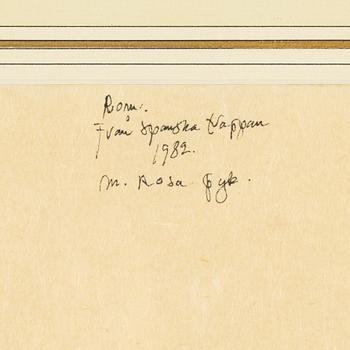 Rom:.
Från Spanska Trappan
1982.
M. Rosa